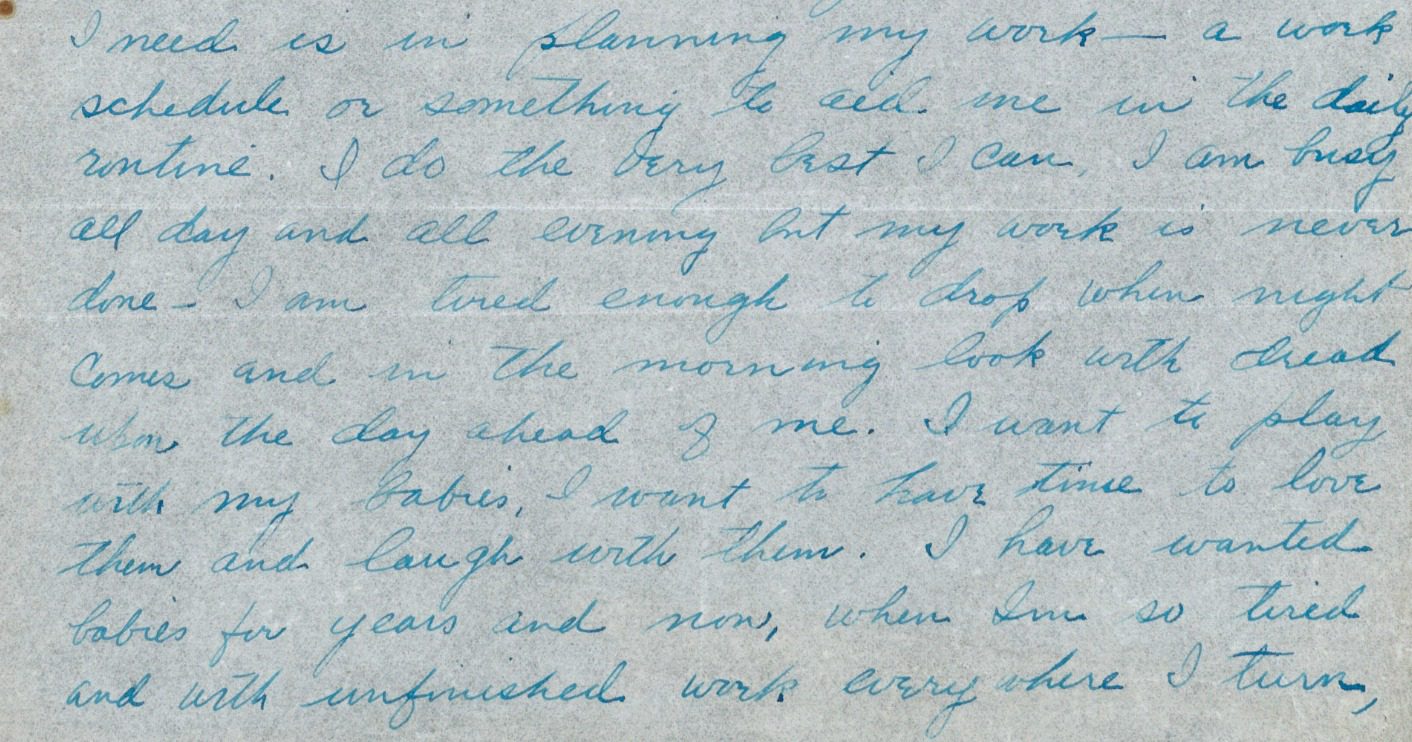 I need is in planning my work — a work
schedule or something to aid me in the daily
routine. I do the very best I can. I am busy
all day and all evening but my work is never
done - I am tired enough to drop when night
comes and in the morning look with dread
upon the day ahead of me. I want to play
with my babies, I want to have time to love
them and laugh with them. I have wanted
babies for years and now, when Im so tired
and with unfinished work everywhere I turn,